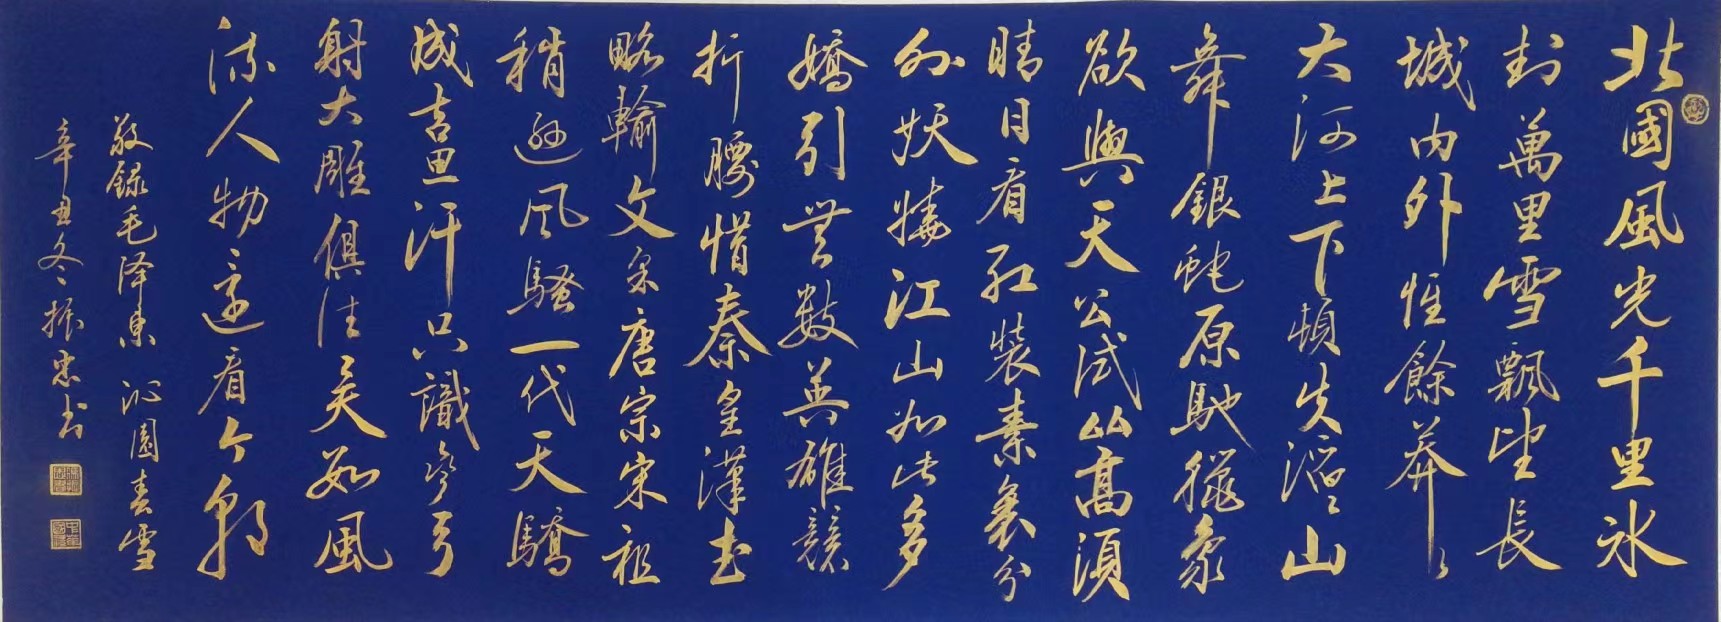 北國風光千里冰
封萬里雪飄望長
城内外惟餘莽々
大河上下頓失滔々山
舞銀蛇原馳臘象
欲與天公試比高須
晴日看紅裝素裹分
外妖嬈江山如此多
嬌引無數英雄競
折腰惜秦皇漢武
略輸文采唐宗宋祖
稍遜風騷一代天驕
成吉思汗只識彎弓
射大雕俱往矣數風
流人物還看今朝
敬録毛泽東 沁園春雪
辛丑冬振忠书